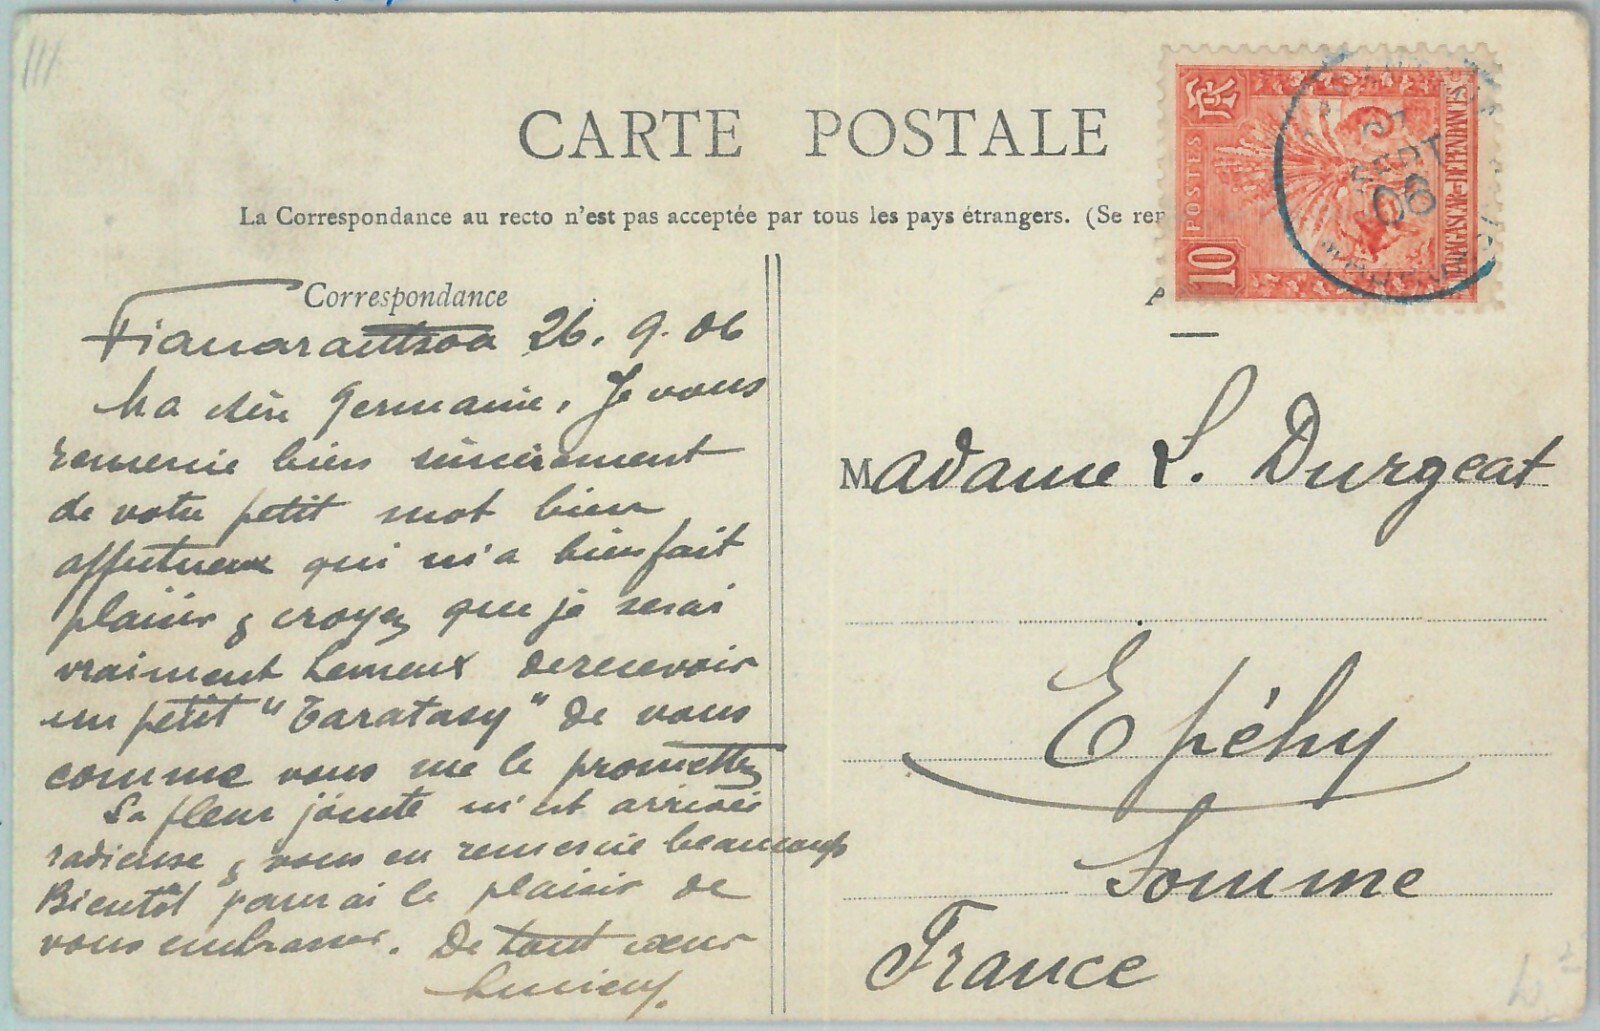 CARTE POSTALE
La Correspondance au recto n'est pas acceptée par tous les pays étrangers. (Se ren
Correspondance
Fianarantsoa 26. 9. 06
Ma chère Germaine, Je vous
remercie bien sincèrement
de votre petit mot bien
affectueux qui m'a bien fait
plaisir & croyez que je serai
vraiment heureux de recevoir
un petit "Taratasy" de vous
comme vous me le promettez
La fleur jointe m'est arrivée
radieuse & vous en remercie beaucoup
Bientôt j'aurai le plaisir de
vous embrasser. De tout cœur
Lucien.
POSTES
RF
10
MADAGASCAR ET DÉPENDANCES
27
SEPT
06
Madame L. Durgeat
Epéhy
Somme
France